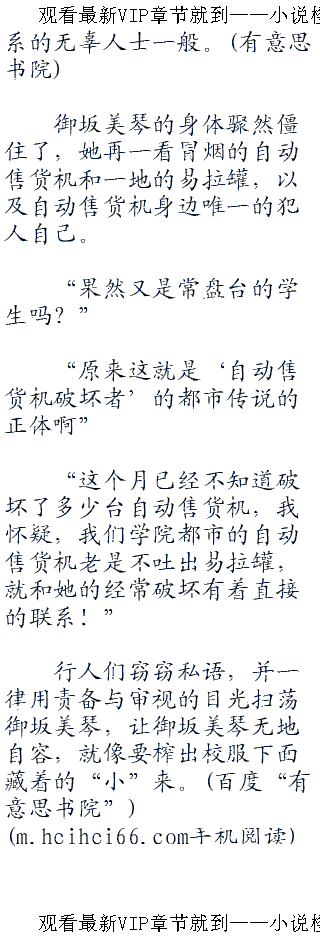 观看最新VIP章节就到——小说检
系的无辜人士一般。(有意思
书院)
御坂美琴的身体骤然僵
住了，她再一看冒烟的自动
售货机和一地的易拉罐，以
及自动售货机身边唯一的犯
人自己。
“果然又是常盘台的学
生吗？”
“原来这就是‘自动售
货机破坏者’的都市传说的
正体啊”
“这个月已经不知道破
坏了多少台自动售货机，我
怀疑，我们学院都市的自动
售货机老是不吐出易拉罐，
就和她的经常破坏有着直接
的联系！”
行人们窃窃私语，并一
律用责备与审视的目光扫荡
御坂美琴，让御坂美琴无地
自容，就像要榨出校服下面
藏着的“小”来。(百度“有
意思书院”)
(m.hcihci66.com手机阅读)
观看最新VIP章节就到——小说检